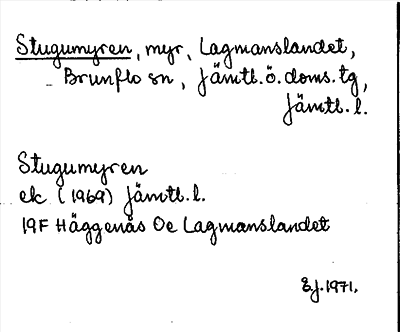 Stugumyren, myr, Lagmanslandet,
Brunflo sn, Jämtl.ö.doms.tg,
Jämtl.l.
Stugumyren
ek (1969) Jämtl.l.
19F Häggenås Oe Lagmanslandet
EJ.1971.